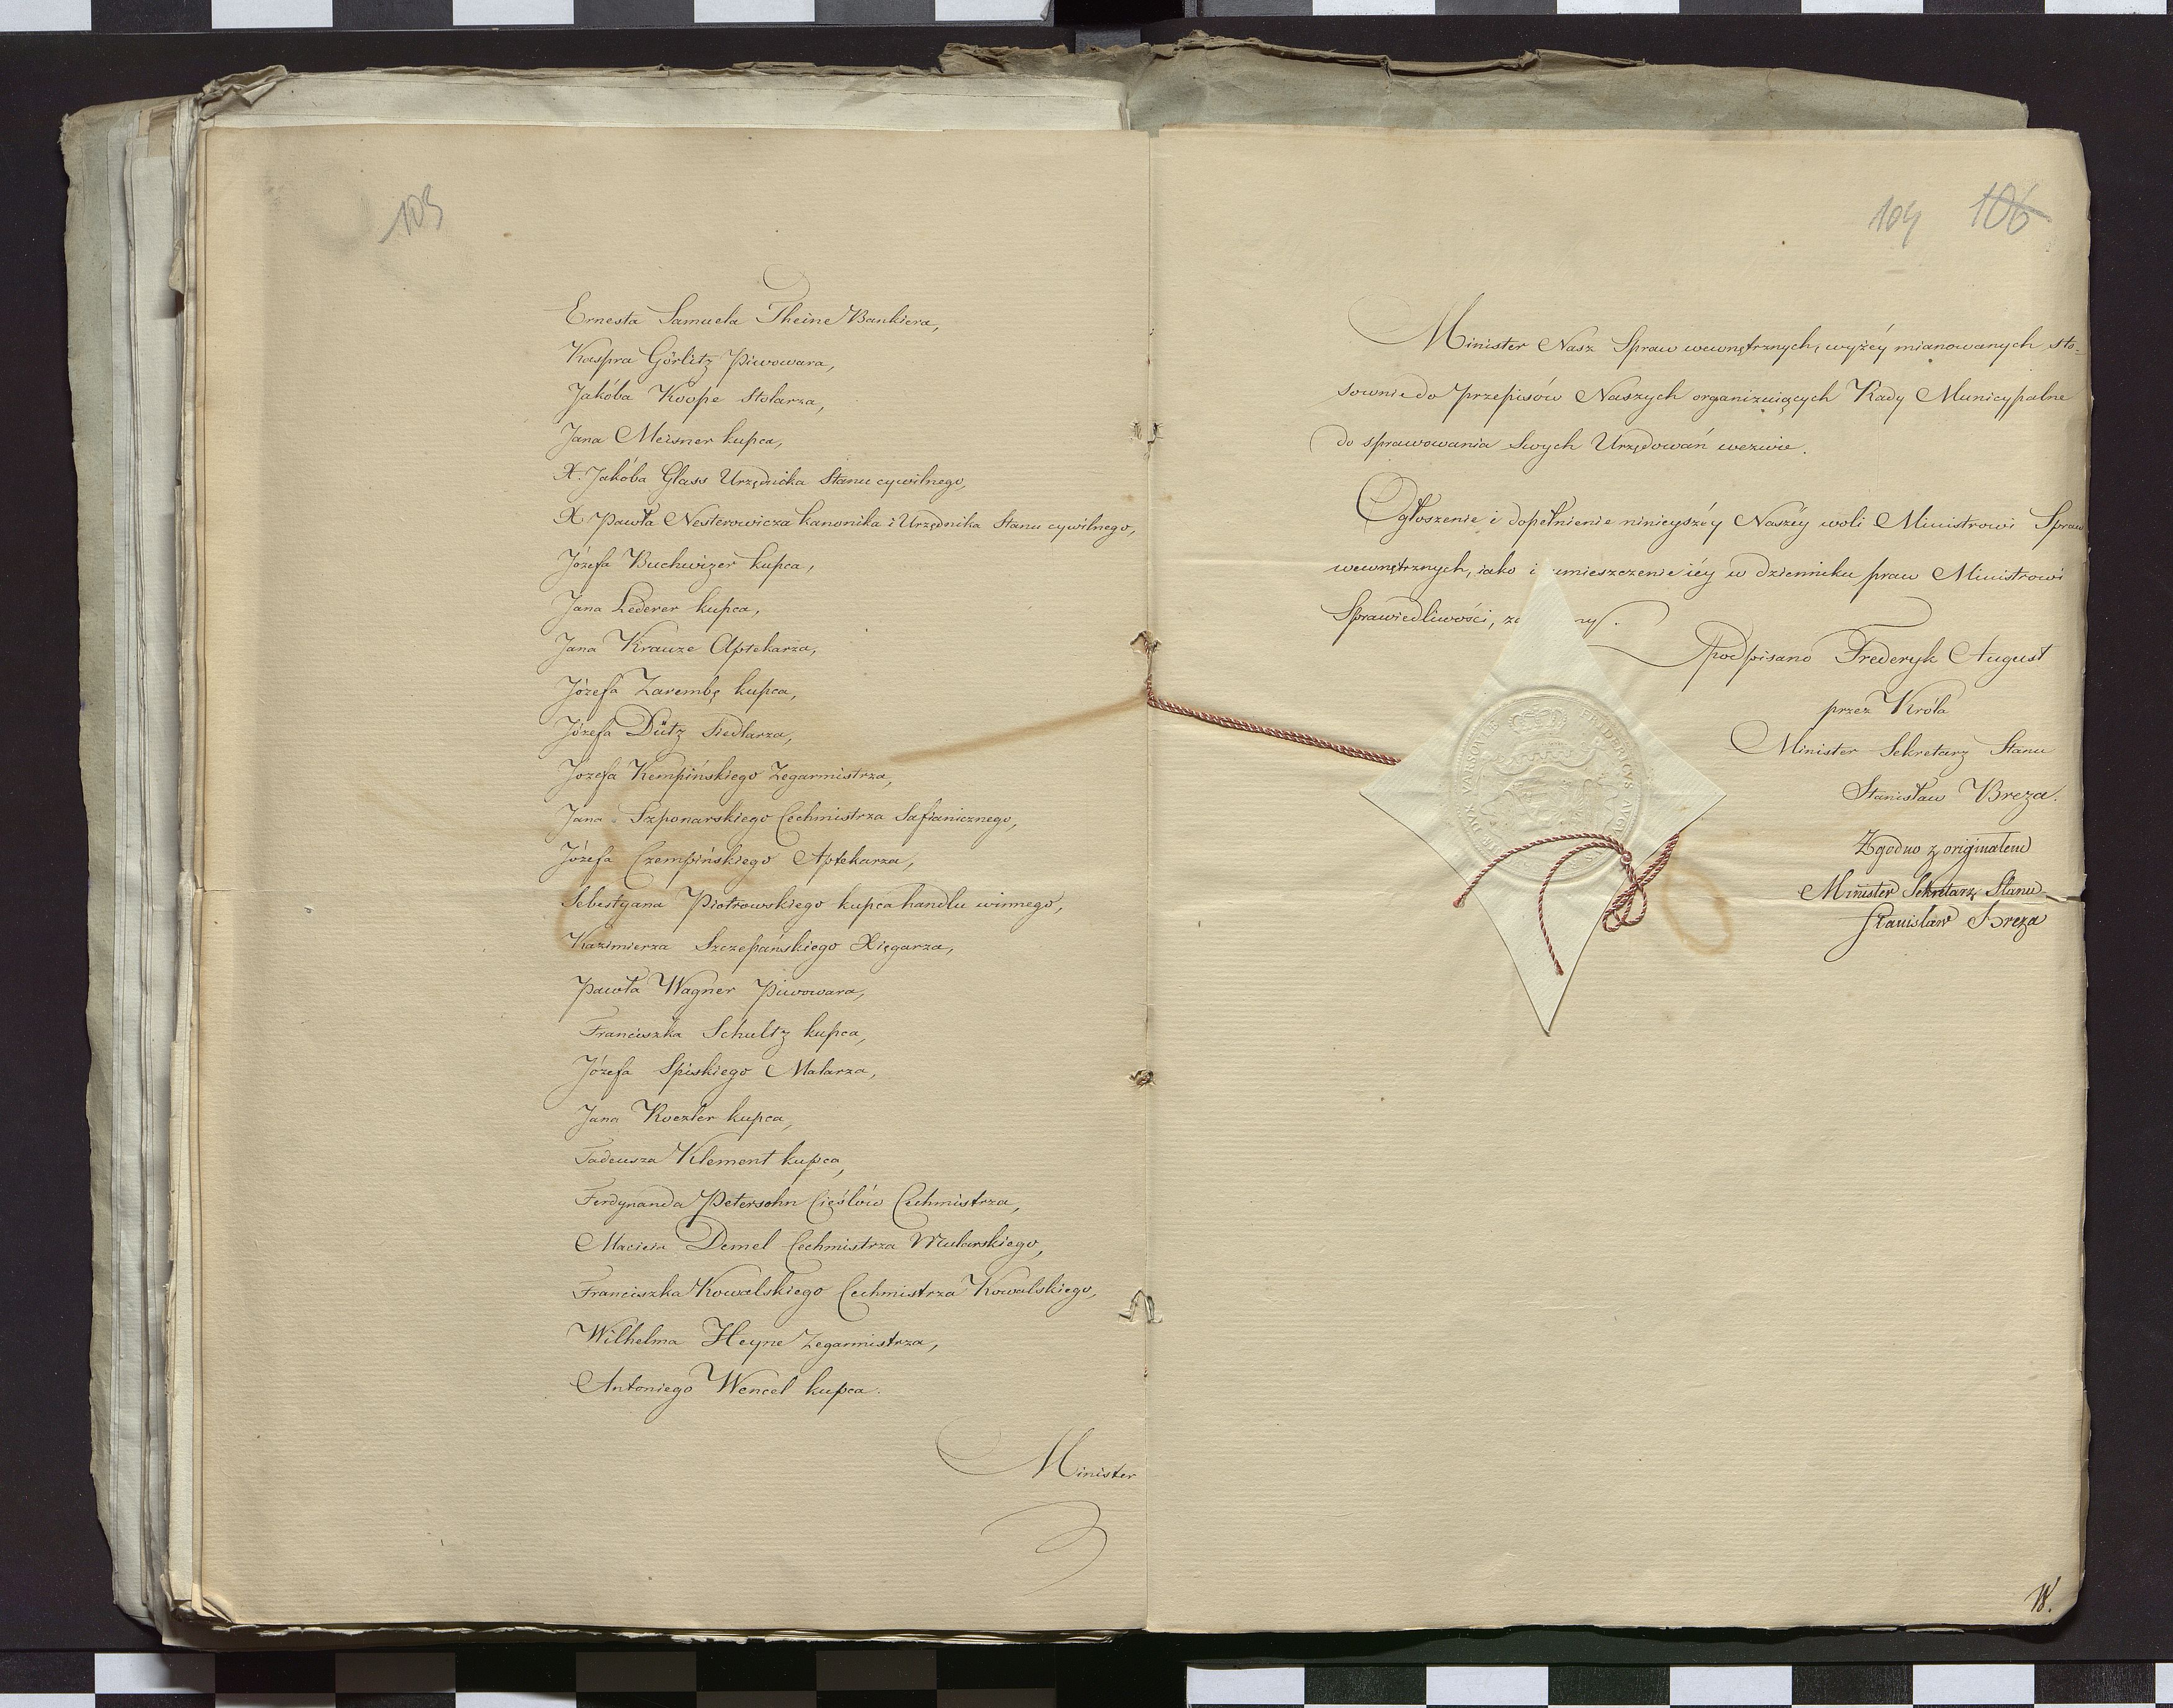 103
Ernesta Samuela Theine Bankiera,
Kaspra Görlitz Piwowara,
Jakóba Koope Stolarza,
Jana Meisner kupca,
X. Jakóba Glass Urzędnika Stanu cywilnego,
X Pawła Nesterowicza kanonika i Urzędnika Stanu cywilnego,
Józefa Buchwizer kupca,
Jana Lederer kupca,
Jana Krauze Aptekarza,
Józefa Zarembę kupca,
Józefa Dütz Siedlarza,
Józefa Kempińskiego Zegarmistrza,
Jana Szponarskiego Cechmistrza Safianicznego,
Józefa Czempińskiego Aptekarza,
Sebestyana Piotrowskiego kupca handlu winnego,
Kazimierza Szczepańskiego Xięgarza,
Pawła Wagner Piwowara,
Franciszka Schultz kupca,
Józefa Spiskiego Malarza,
Jana Roezler kupca,
Tadeusza Klement kupca,
Ferdynanda Petersohn Cieślów Cechmistrza,
Macieia Demel Cechmistrza Mularskiego,
Franciszka Kowalskiego Cechmistrza Kowalskiego,
Wilhelma Heyne Zegarmistrza,
Antoniego Wencel kupca.
Minister
104 106
Minister Nasz Spraw wewnętrznych, wyżéy mianowanych sto-
sownie do przepisów Naszych organizuiących Rady Municypalne
do sprawowania swych Urzędowań wezwie.
Ogłoszenie i dopełnienie ninieyszéy Naszéy woli Ministrowi Spraw
wewnętrznych, iako i umieszczenie iéy w dzienniku praw Ministrowi
Sprawiedliwości,
Podpisano Frederyk August
przez Króla
Minister Sekretarz Stanu
Stanisław Breza.
Zgodno z originałem
Minister Sekretarz Stanu
Stanisław Breza
FRIDERICVS AVGV
DVX VARSOVIÆ